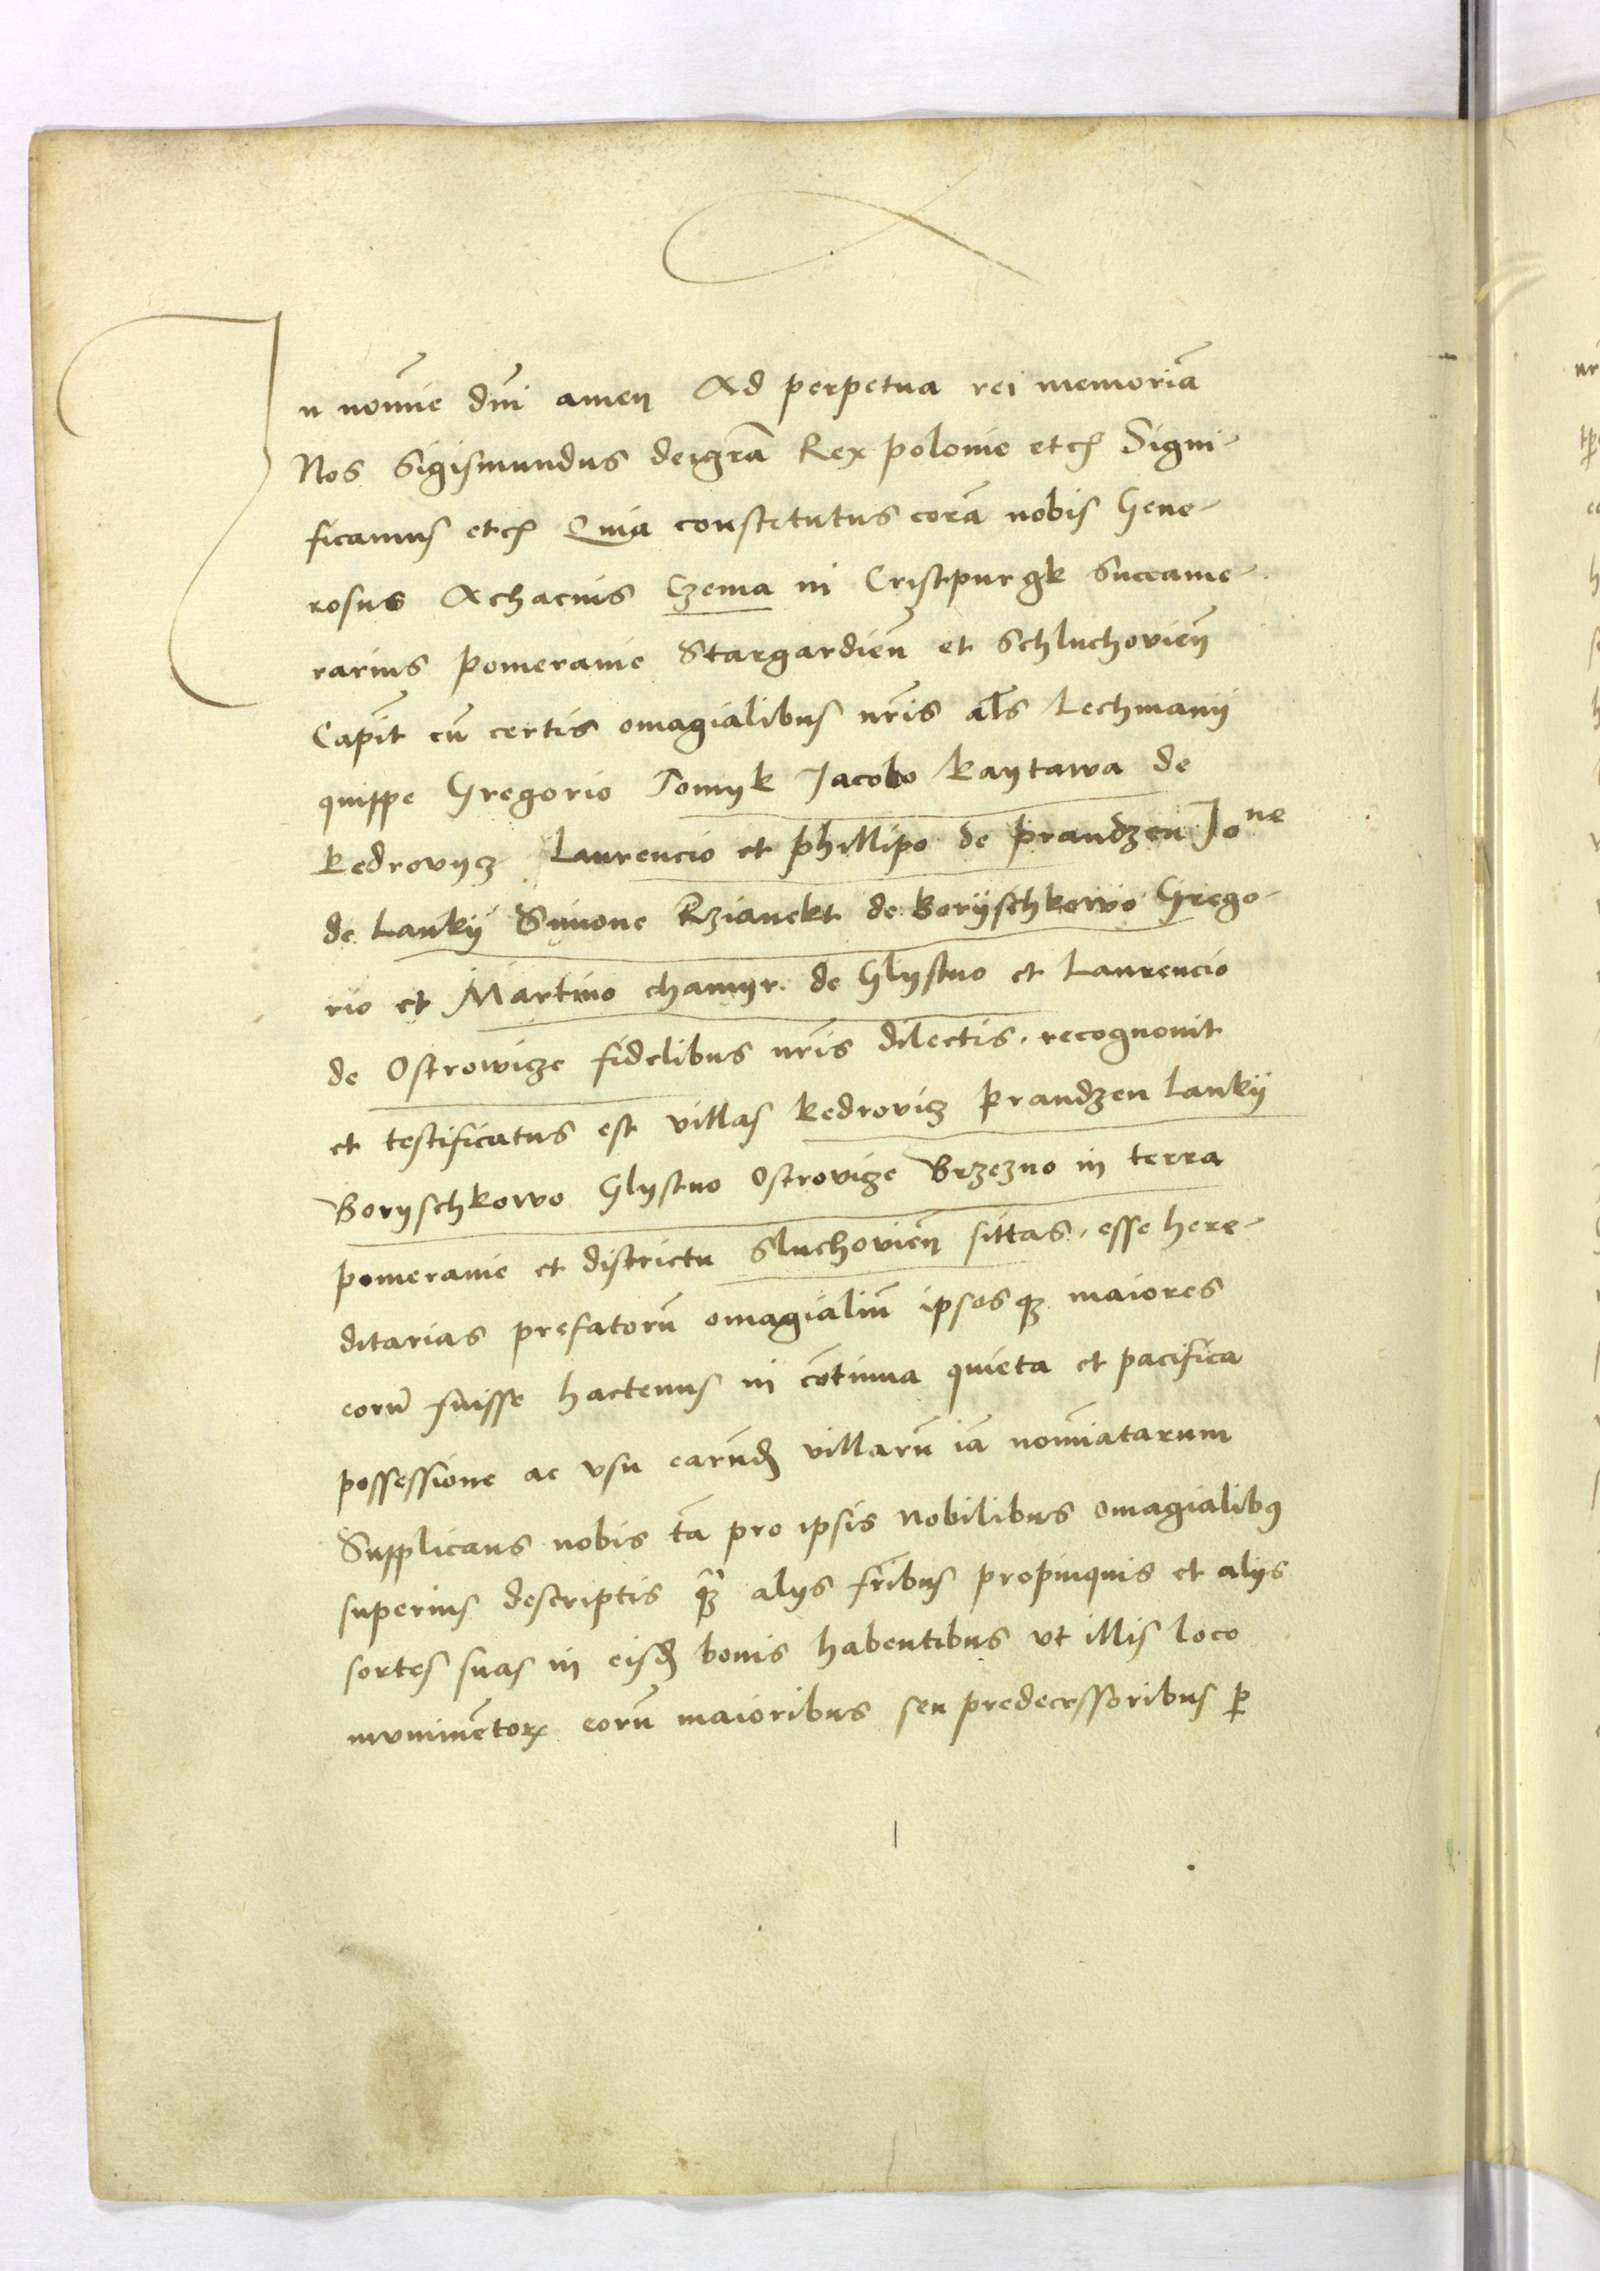 In nom̅ie dn̅i amen Ad perpetua rei memoria̅
Nos Sigismundus dei gra̅ Rex polonie etc̅ Signi-
ficamus etc̅ Quia constitutus cora̅ nobis Gene-
rosus Achacius Czema in Cristpurgk Succame-
rarius pomeranie Stargardien̅ et Schluchovien̅
Capit̅ cu̅ certis omagialibus nr̅is al̅s Lechmanij
quippe Gregorio Tomyk Jacobo kaytawa de
kedrovycz Laurencio et phillipo de prandzen Jo^ne
de Lanky Simone Rzianekt de Boryschkowo Grego-
rio et Martino chamyr de Glystno et Laurencio
de Ostrowicze fidelibus nr̅is dilectis recognouit
et testificatus est villas kedrovicz prandzen Lanky
Boryschkowo Glystno Ostrovicze Brzezno in terra
pomeranie et districtu Sluchovien̅ sittas, esse here-
ditarias prefatoru̅ omagialiu̅ ipsosqꝫ maiores
eoru̅ fuisse hactenus in co̅tinua quieta et pacifica
possessione ac vsu earu̅d̅ villaru̅ ia̅ nom̅iatarum
Supplicans nobis ta̅ pro ipsis nobilibus omagialibꝰ
superius descriptis qꝫ̅ alys fr̅ibus propinquis et alys
sortes suas in eisd̅ bonis habentibus vt illis loco
munime̅toꝝ eoru̅ maioribus seu predecessoribus ꝑ